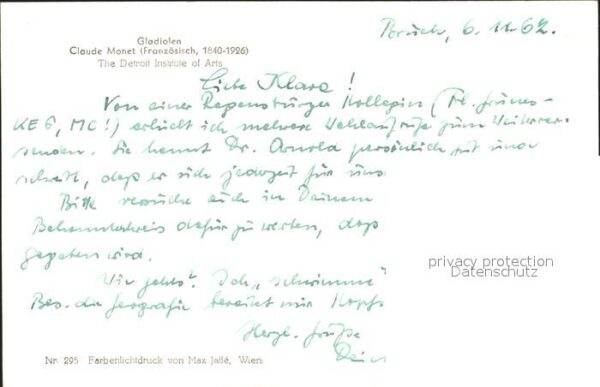 Gladiolen
Claude Monet (Französisch, 1840-1926)
The Detroit Institute of Arts
Bruck, 6. 11. 62.
Liebe Klara!
Von einer Regensburger Kollegin (Frl.
KE 6, MC!) erhielt ich mehrere Wahlaufrufe zum Weiterver-
senden. Sie kennt Dr. Arnold persönlich gut und
schreibt, daß er sich jederzeit für uns
Bitte versuche auch in Deinem
Bekanntenkreis dafür zu werben, daß
gegeben wird.
Wie geht's? Ich "schwimme"
Bes. die Geografie bereitet mir Kopfs
Herzl. Grüße
Dein
privacy protection
Datenschutz
Nr. 295 Farbenlichtdruck von Max Jaffé, Wien